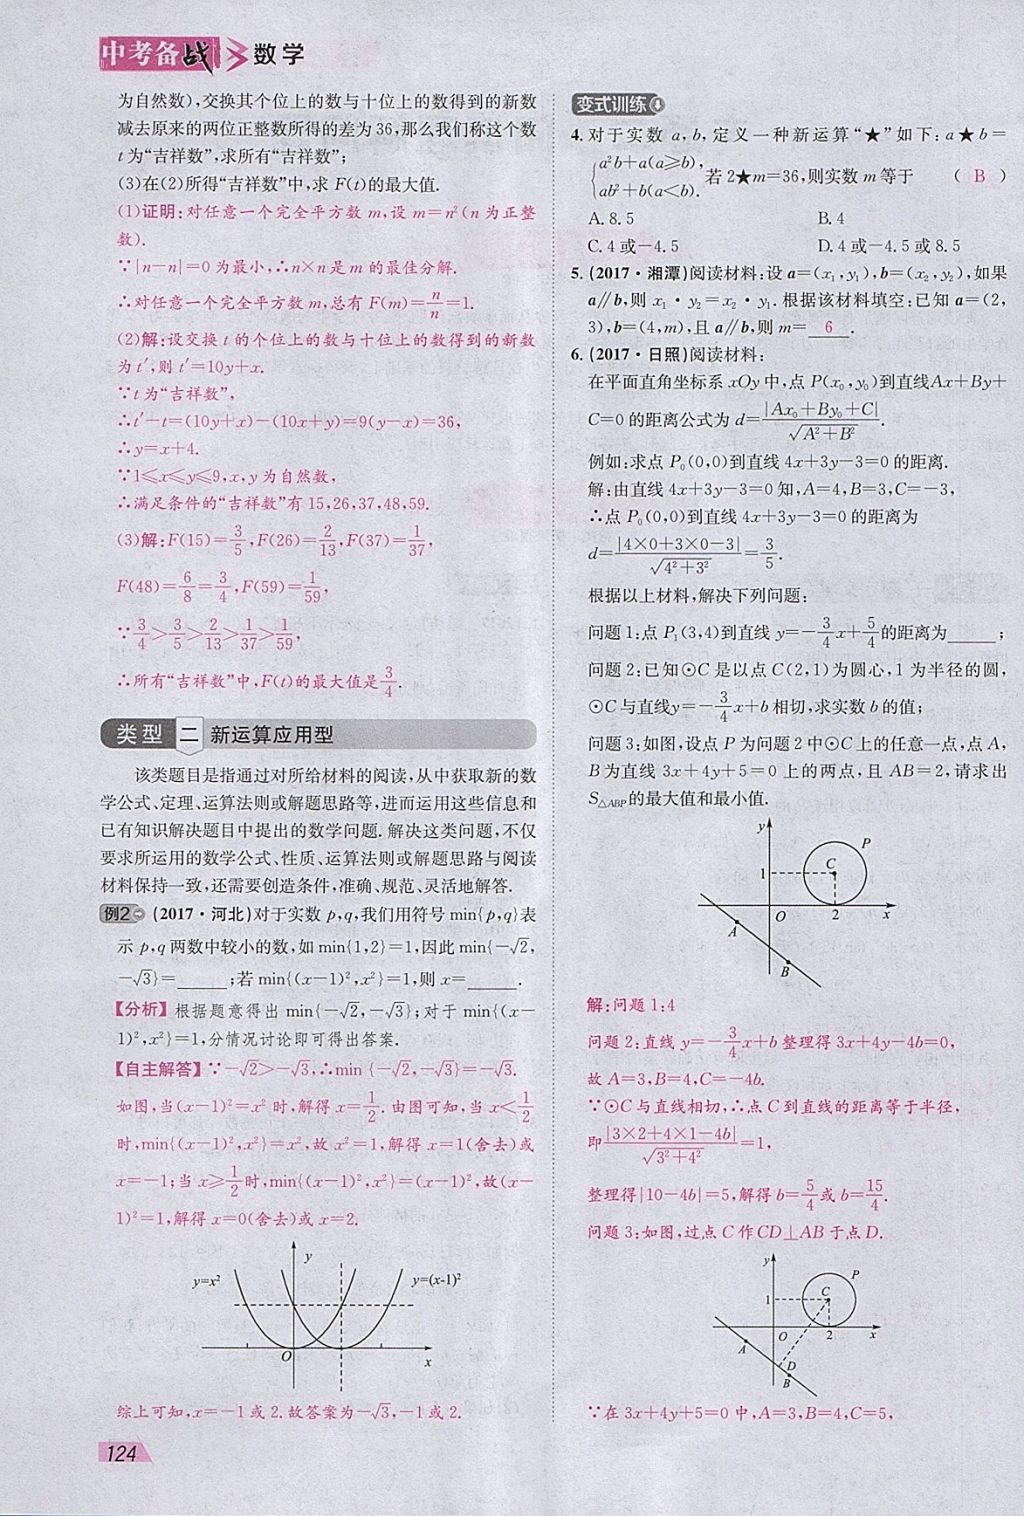 中考备战 数学
为自然数),交换其个位上的数与十位上的数得到的新数
减去原来的两位正整数所得的差为36,那么我们称这个数
t为“吉祥数”,求所有“吉祥数”;
(3)在(2)所得“吉祥数”中,求 F(t)的最大值.
(1)证明:对任意一个完全平方数 m,设 m=n²(n 为正整
数).
∵|n−n|=0为最小,∴n×n是m的最佳分解.
∴对任意一个完全平方数 m,总有 F(m)=n/n=1.
(2)解:设交换 t 的个位上的数与十位上的数得到的新数
为 t′,则 t′=10y+x.
∵t为“吉祥数”,
∴t′−t=(10y+x)−(10x+y)=9(y−x)=36,
∴y=x+4.
∵1≤x≤y≤9,x,y为自然数,
∴满足条件的“吉祥数”有15,26,37,48,59.
(3)解:F(15)=3/5,F(26)=2/13,F(37)=1/37,
F(48)=6/8=3/4,F(59)=1/59,
∵3/4>3/5>2/13>1/37>1/59,
∴所有“吉祥数”中,F(t)的最大值是3/4.
类型二 新运算应用型
该类题目是指通过对所给材料的阅读,从中获取新的数
学公式、定理、运算法则或解题思路等,进而运用这些信息和
已有知识解决题目中提出的数学问题.解决这类问题,不仅
要求所运用的数学公式、性质、运算法则或解题思路与阅读
材料保持一致,还需要创造条件,准确、规范、灵活地解答.
例2 (2017·河北)对于实数 p,q,我们用符号 min{p,q}表
示 p,q 两数中较小的数,如 min{1,2}=1,因此 min{−√2,
−√3}=_____;若 min{(x−1)²,x²}=1,则 x=_____.
【分析】根据题意得出 min{−√2,−√3};对于 min{(x−
1)²,x²}=1,分情况讨论即可得出答案.
【自主解答】∵−√2>−√3,∴min {−√2,−√3}=−√3.
如图,当(x−1)²=x² 时,解得 x=1/2.由图可知,当 x<1/2
时,min{(x−1)²,x²}=x²,故 x²=1,解得 x=1(舍去)或
x=−1;当 x≥1/2时,min{(x−1)²,x²}=(x−1)²,故(x−
1)²=1,解得 x=0(舍去)或 x=2.
y
y=x²
y=(x-1)²
O
x
综上可知,x=−1或2.故答案为−√3,−1或2.
124
变式训练
4.对于实数 a,b,定义一种新运算“★”如下:a★b=
{a²b+a(a≥b),
ab²+b(a<b).若2★m=36,则实数 m 等于 ( B )
A.8.5 B.4
C.4或−4.5 D.4或−4.5或8.5
5.(2017·湘潭)阅读材料:设 a=(x₁,y₁),b=(x₂,y₂),如果
a∥b,则 x₁·y₂=x₂·y₁.根据该材料填空:已知 a=(2,
3),b=(4,m),且 a∥b,则 m= 6 .
6.(2017·日照)阅读材料:
在平面直角坐标系 xOy 中,点 P(x₀,y₀)到直线Ax+By+
C=0 的距离公式为 d=|Ax₀+By₀+C|/√(A²+B²).
例如:求点 P₀(0,0)到直线 4x+3y−3=0 的距离.
解:由直线 4x+3y−3=0 知,A=4,B=3,C=−3,
∴点 P₀(0,0)到直线 4x+3y−3=0 的距离为
d=|4×0+3×0−3|/√(4²+3²)=3/5.
根据以上材料,解决下列问题:
问题1:点 P₁(3,4)到直线 y=−3/4x+5/4的距离为_____;
问题2:已知⊙C 是以点 C(2,1)为圆心,1 为半径的圆,
⊙C与直线y=−3/4x+b 相切,求实数 b 的值;
问题3:如图,设点 P 为问题 2 中⊙C上的任意一点,点 A,
B为直线 3x+4y+5=0 上的两点,且 AB=2,请求出
S△ABP的最大值和最小值.
y
P
C
1
O
2
x
A
B
解:问题1:4
问题2:直线 y=−3/4x+b 整理得3x+4y−4b=0,
故 A=3,B=4,C=−4b.
∵⊙C与直线相切,∴点C到直线的距离等于半径,
即|3×2+4×1−4b|/√(3²+4²)=1,
整理得|10−4b|=5,解得 b=5/4或 b=15/4.
问题3:如图,过点 C 作 CD⊥AB 于点 D.
y
P
C
1
O
2
x
A
D
B
∵在 3x+4y+5=0 中,A=3,B=4,C=5,